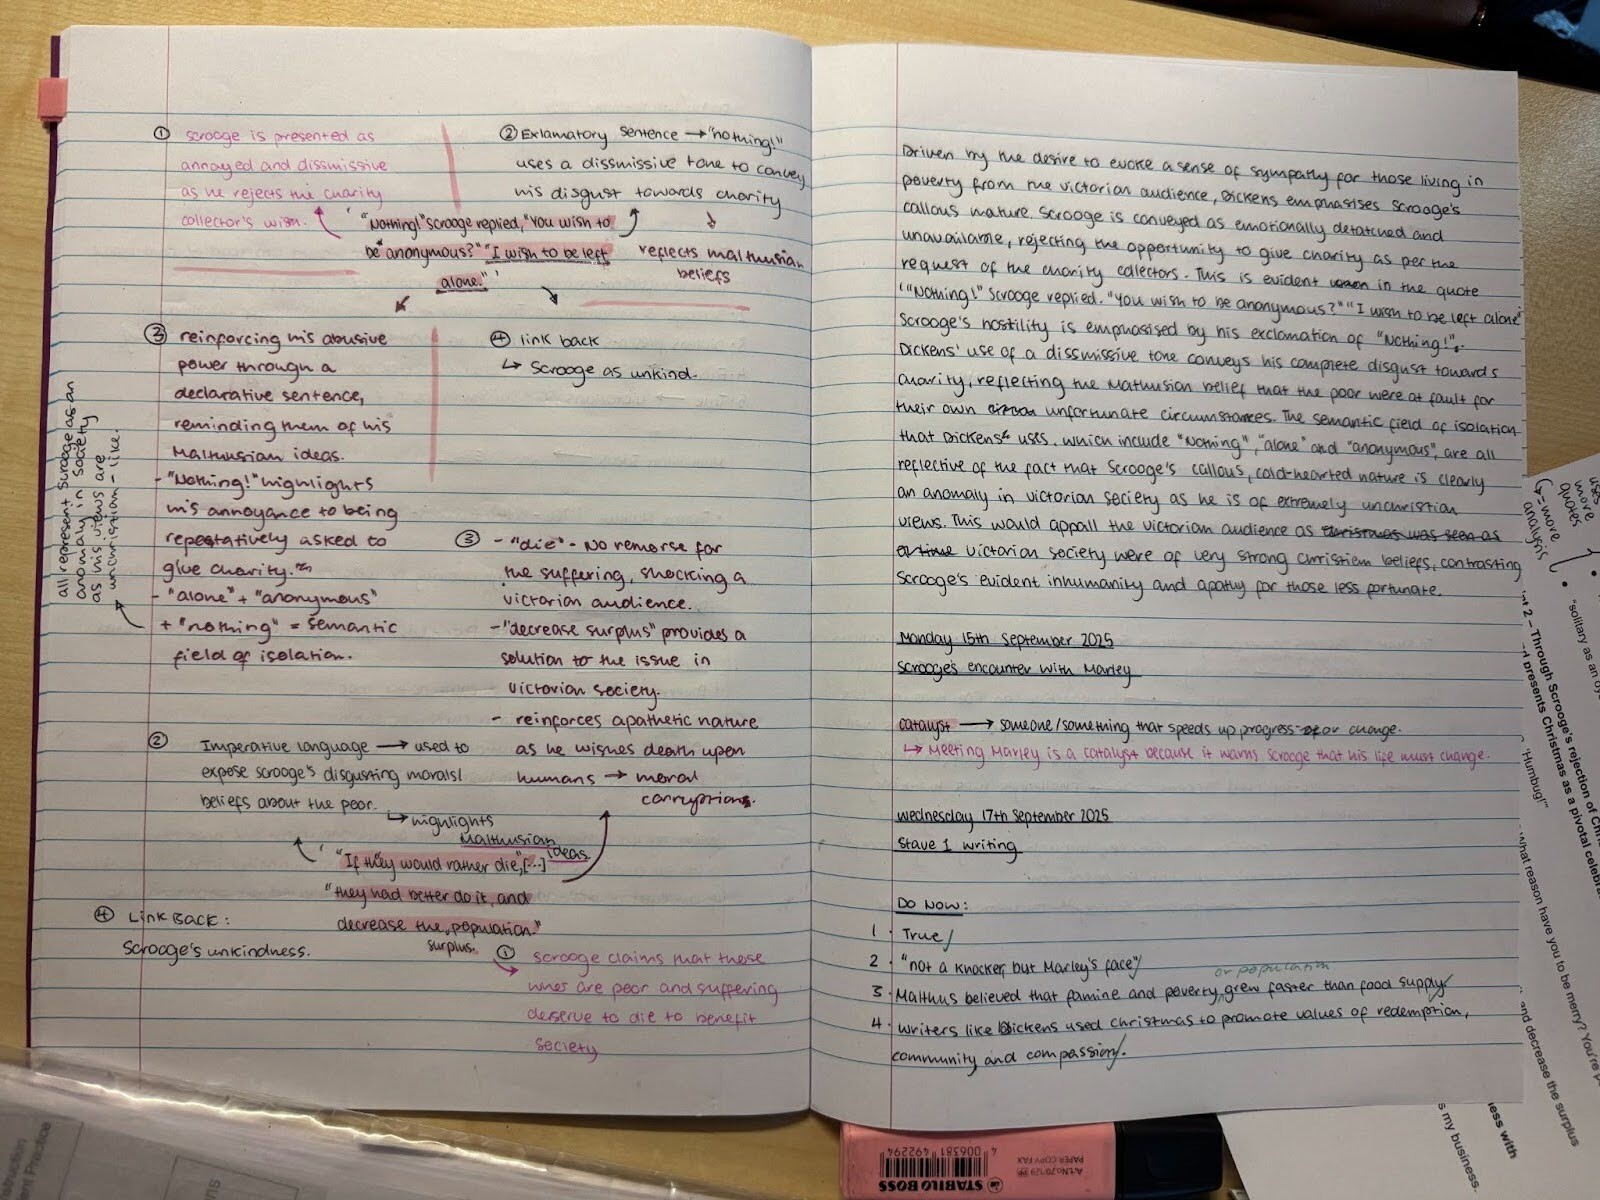 ① scrooge is presented as
annoyed and dissmissive
as he rejects the charity
collector's wish.
② Exlamatory sentence → "nothing!"
uses a dissmissive tone to convey
his disgust towards charity
↓
reflects malthusian
beliefs
' "Nothing!" Scrooge replied, "You wish to
be anonymous?" "I wish to be left
alone." '
③ reinforcing his abusive
power through a
declarative sentence,
reminding them of his
Malthusian ideas.
- "Nothing!" highlights
his annoyance to being
repeatatively asked to
give charity.
- "alone" + "anonymous"
+ "nothing" = semantic
field of isolation.
all represent Scrooge as an
anomaly in society
as his views are
unchristian-like.
④ link back
↳ Scrooge as unkind.
③ - "die" - No remorse for
the suffering, shocking a
victorian audience.
- "decrease surplus" provides a
solution to the issue in
victorian society.
- reinforces apathetic nature
as he wishes death upon
humans → moral
corruption.
② Imperative language → used to
expose scrooge's disgusting morals/
beliefs about the poor.
↳ highlights
Malthusian
ideas
' "If they would rather die, [...]
"they had better do it, and
decrease the population."
surplus
④ LINK BACK:
Scrooge's unkindness.
① scrooge claims that those
whos are poor and suffering
deserve to die to benefit
society
Driven by the desire to evoke a sense of sympathy for those living in
poverty from the victorian audience, Dickens emphasises Scrooge's
callous nature. Scrooge is conveyed as emotionally detatched and
unavailable, rejecting the opportunity to give charity as per the
request of the charity collectors. This is evident in the quote
' "Nothing!" Scrooge replied. "You wish to be anonymous?" "I wish to be left alone"
Scrooge's hostility is emphasised by his exclamation of "Nothing!".
Dickens' use of a dissmissive tone conveys his complete disgust towards
charity, reflecting the Malthusian belief that the poor were at fault for
their own unfortunate circumstances. The semantic field of isolation
that Dickens uses, which include "Nothing", "alone" and "anonymous", are all
reflective of the fact that Scrooge's callous, cold-hearted nature is clearly
an anomaly in victorian society as he is of extremely unchristian
views. This would appall the victorian audience as Christmas was seen as
a time victorian society were of very strong christian beliefs, contrasting
Scrooge's evident inhumanity and apathy for those less fortunate.
Monday 15th September 2025
Scrooge's encounter with Marley
catalyst → someone/something that speeds up progress or change.
↳ Meeting Marley is a catalyst because it warns Scrooge that his life must change.
Wednesday 17th September 2025
Stave 1 writing
DO NOW:
1. True
2. "not a knocker, but Marley's face"
or population
3. Malthus believed that famine and poverty grew faster than food supply
4. writers like Dickens used christmas to promote values of redemption,
community and compassion.
use
more
quotes
↳ = more
analysis
"solitary as an oy
2 – Through Scrooge's rejection of Ch
presents Christmas as a pivotal celebra
'Humbug!'
What reason have you to be merry? You're p
and decrease the surplus
ness with
s my business.
STABILO BOSS
Art.No.70/129
PAPER COPY FAX
4 006381 492294
struction
ent Practice
ns